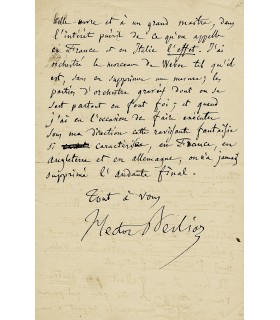 belle œuvre et à un grand maître, dans
l'intérêt puéril de ce qu'on appelle
en France et en Italie l'effet. J'ai
orchestré le morceau de Weber tel qu'il
est, sans en supprimer une mesure; les
parties d'orchestre gravées dont on se
sert partout en font foi; et quand
j'ai eu l'occasion de faire exécuter
sous ma direction cette ravissante fantaisie
si caractérisée, en France, en
angleterre et en allemagne, on n'a jamais
supprimé l'andante final.
Tout à vous
Hector Berlioz